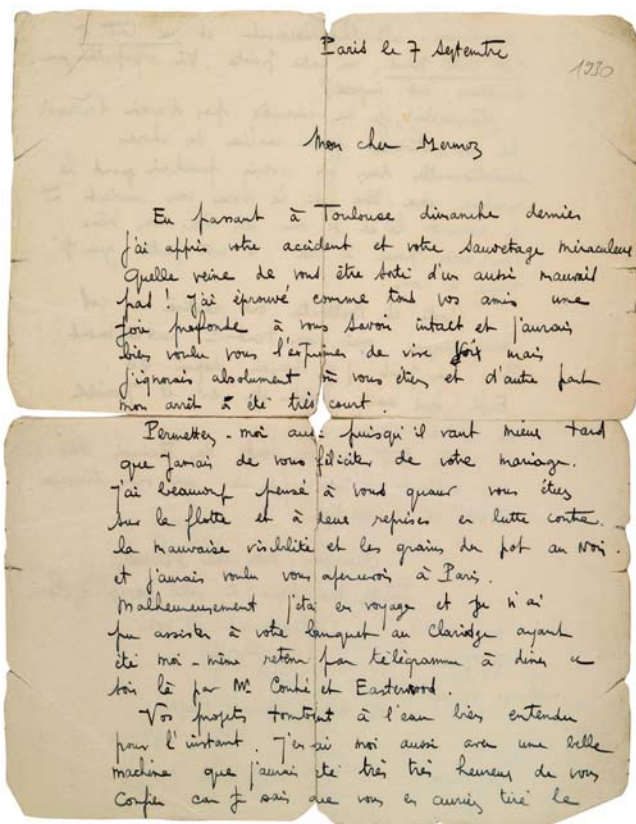 Paris le 7 Septembre
1930
Mon cher Mermoz
En passant à Toulouse dimanche dernier
j'ai appris votre accident et votre sauvetage miraculeux
Quelle veine de vous être sorti d'un aussi mauvais
pas ! J'ai éprouvé comme tous vos amis une
joie profonde à vous savoir intact et j'aurais
bien voulu vous l'exprimer de vive voix mais
j'ignorais absolument où vous étiez et d'autre part
mon arrêt à été très court.
Permettez-moi aussi puisqu'il vaut mieux tard
que jamais de vous féliciter de votre mariage.
J'ai beaucoup pensé à vous quand vous étiez
sur la flotte et à deux reprises en lutte contre
la mauvaise visibilité et les grains du pot au Noir.
et j'aurais voulu vous apercevoir à Paris.
Malheureusement j'étais en voyage et je n'ai
pu assister à votre banquet au Claridge ayant
été moi-même retenu par télégramme à diner ce
soir là par Mr et Easterwood.
Vos projets tombent à l'eau bien entendu
pour l'instant. J'en ai moi aussi avec une belle
machine que j'aurais été très très heureux de vous
confier car je sais que vous en auriez tiré le